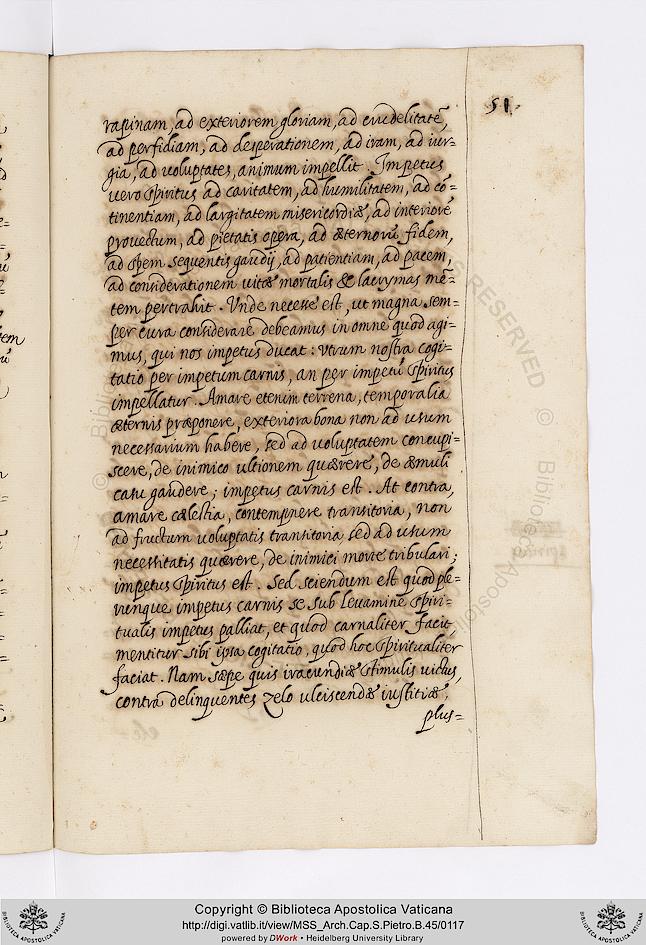 51.
rapinam, ad exteriorem gloriam, ad crudelitatē,
ad perfidiam, ad desperationem, ad iram, ad iur=
gia, ad voluptates, animum impellit. Impetus
vero spiritus ad caritatem, ad humilitatem, ad cō=
tinentiam, ad largitatem misericordiæ, ad interiorē
provectum, ad pietatis opera, ad æternorū fidem,
ad spem sequentis gaudij, ad patientiam, ad pacem,
ad considerationem vitæ mortalis & lacrymas mē=
tem pertrahit. Unde necesse est, ut magna sem=
per cura considerare debeamus in omne quod agi=
mus, qui nos impetus ducat: utrum nostra cogi=
tatio per impetum carnis, an per impetū spiritus
impellatur. Amare etenim terrena, temporalia
æternis præponere, exteriora bona non ad usum
necessarium habere, sed ad voluptatem concupi=
scere, de inimico ultionem quærere, de æmuli
casu gaudere; impetus carnis est. At contra,
amare cælestia, contemnere transitoria, non
ad fructum voluptatis transitoria sed ad usum
necessitatis quærere, de inimici morte tribulari;
impetus spiritus est. Sed sciendum est quod ple=
runque impetus carnis se sub levamine spiri=
tualis impetus palliat, et quod carnaliter facit,
mentitur sibi ipsa cogitatio, quod hoc spiritualiter
faciat. Nam sæpe quis iracundiæ stimulis victus,
contra delinquentes zelo ulciscendæ iustitiæ,
plus=
Copyright © Biblioteca Apostolica Vaticana
http://digi.vatlib.it/view/MSS_Arch.Cap.S.Pietro.B.45/0117
powered by DWork • Heidelberg University Library